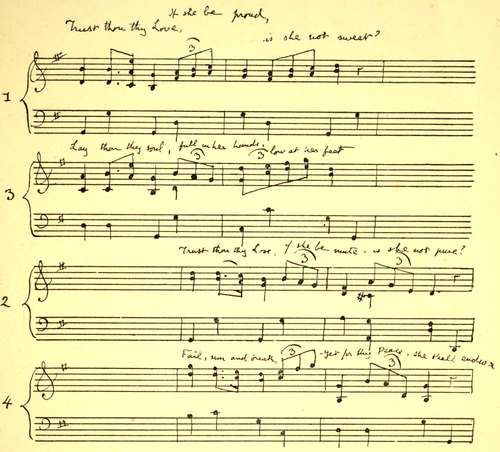 If she be proud,
Trust thou thy Love,
is she not sweet?
3
1
Lay thou thy soul, full in her hands, low at her feet
3
3
3
Trust thou thy Love, if she be mute, is she not pure?
3
3
2
Fail, sun and breath, - yet for thy Peace, she shall endure
3
3
4